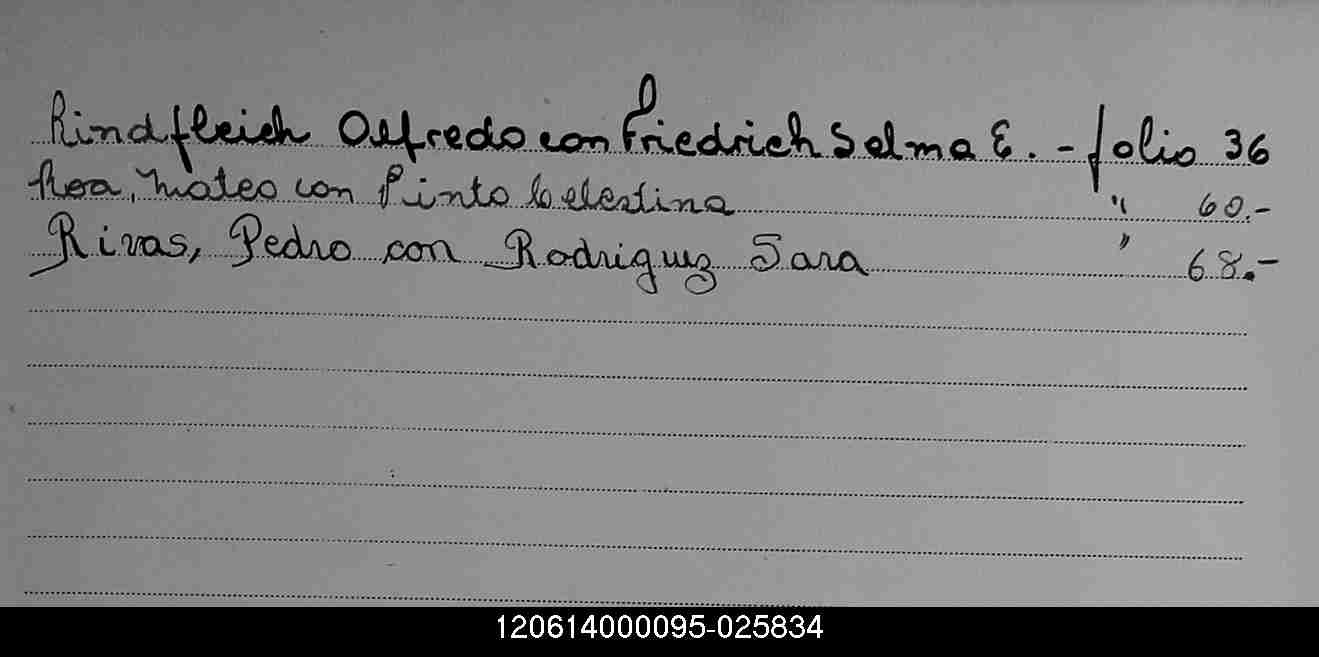 Rindfleich Alfredo con Friedrich Selma E. - folio 36
Roa, Mateo con Pinto Celestina " 60.-
Rivas, Pedro con Rodriguez Sara " 68.-
120614000095-025834